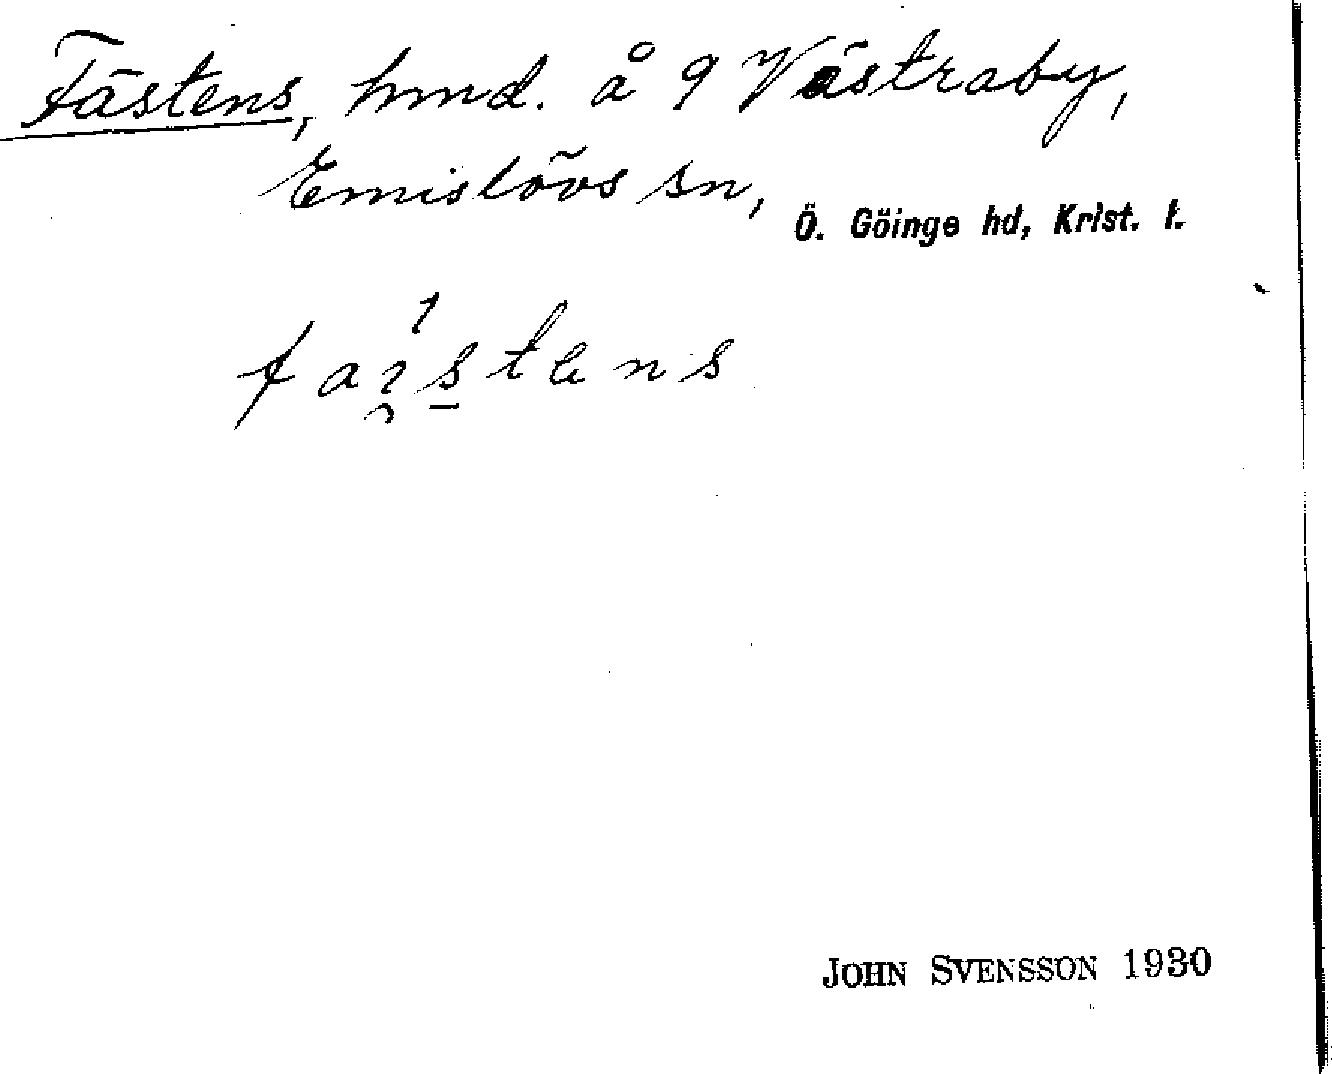 Fästens, hmd. å 9 Västraby,
Emislövs sn,
Ö. Göinge hd, Krist. l.
JOHN SVENSSON 1930